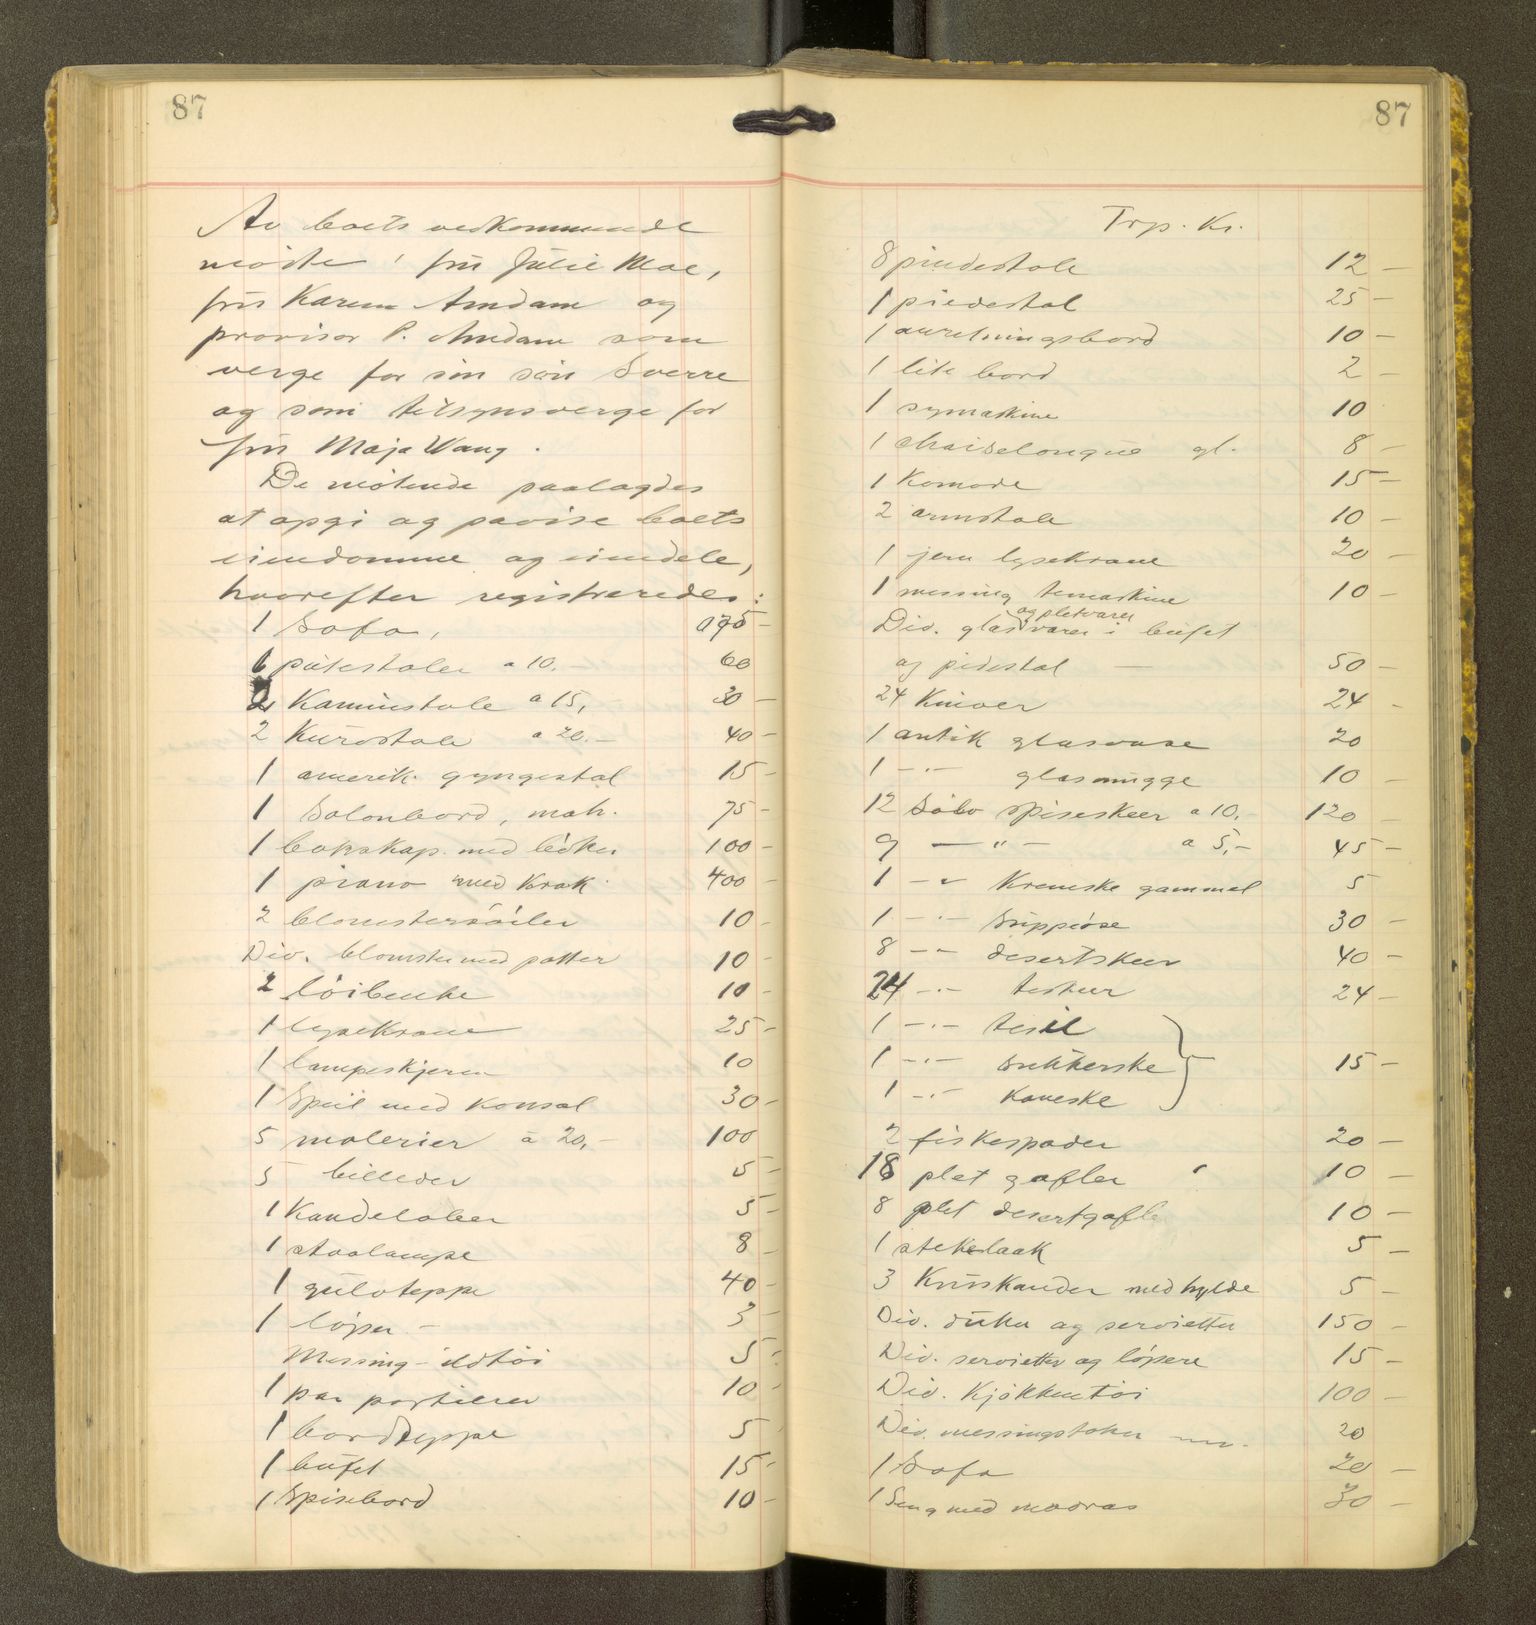 87
Av boets vedkommende
møtte: fru Julie Moe,
fru Karen Amdam og
provisor P. Amdam som
verge for sin søn Sverre
og som tilsynsverge for
fru Maja Wang.
De møtende paalagdes
at opgi og pavise boets
eiendomme og eiendele,
hvorefter registreredes:
1 Sofa, 75 -
6 putestoler a 10.- 60
2 Kaminstole a 15,- 30 -
2 Kurvstole a 20.- 40 -
1 amerik. gyngestol 15 -
1 Salonbord, mah. 75 -
1 bokskap med bøker 100 -
1 piano med krak 400 -
2 blomstersøiler 10 -
Div. blomster med potter 10 -
2 løibenke 10 -
1 lysekrone 25 -
1 lampeskjerm 10
1 Speil med Konsol 30 -
5 malerier à 20,- 100
5 billeder 5 -
1 Kandelaber 5 -
1 staalampe 8 -
1 gulvteppe 40 -
1 løper - 3 -
Messing-ildtøi 5 -
1 par portierer 10 -
1 bordteppe 5 -
1 bufet 15 -
1 Spisebord 10 -
87
Trp. Kr.
8 pindestole 12 -
1 piedestal 25 -
1 anretningsbord 10 -
1 lite bord 2 -
1 symaskine 10
1 chaiselongue gl. 8 -
1 Komode 15 -
2 armstole 10 -
1 jern lysekrone 20 -
1 messing temaskine 10 -
og pletvarer
Div. glasvarer i bufet
og pidestal 50 -
24 Kniver 24 -
1 antik glasvase 20
1 -"- glasmugge 10 -
12 Sølv spiseskeer a 10,- 120 -
9 -"- a 5,- 45 -
1 -"- Kremske gammel 5
1 -"- Suppeøse 30 -
8 -"- desertskeer 40 -
24 -"- teskeer 24 -
1 -"- tesil
1 -"- sukkerske 15 -
1 -"- Kaveske
2 fiskespader 20 -
18 plet gafler 10 -
8 plet desertgafler 10 -
1 stekelaak 5 -
3 Kruskander med hylde 5 -
Div. duker og servietter 150 -
Div. servietter og løpere 15 -
Div. Kjøkkentøi 100 -
Div. messingstaker 20
1 Sofa 20 -
1 Seng med madras 30 -